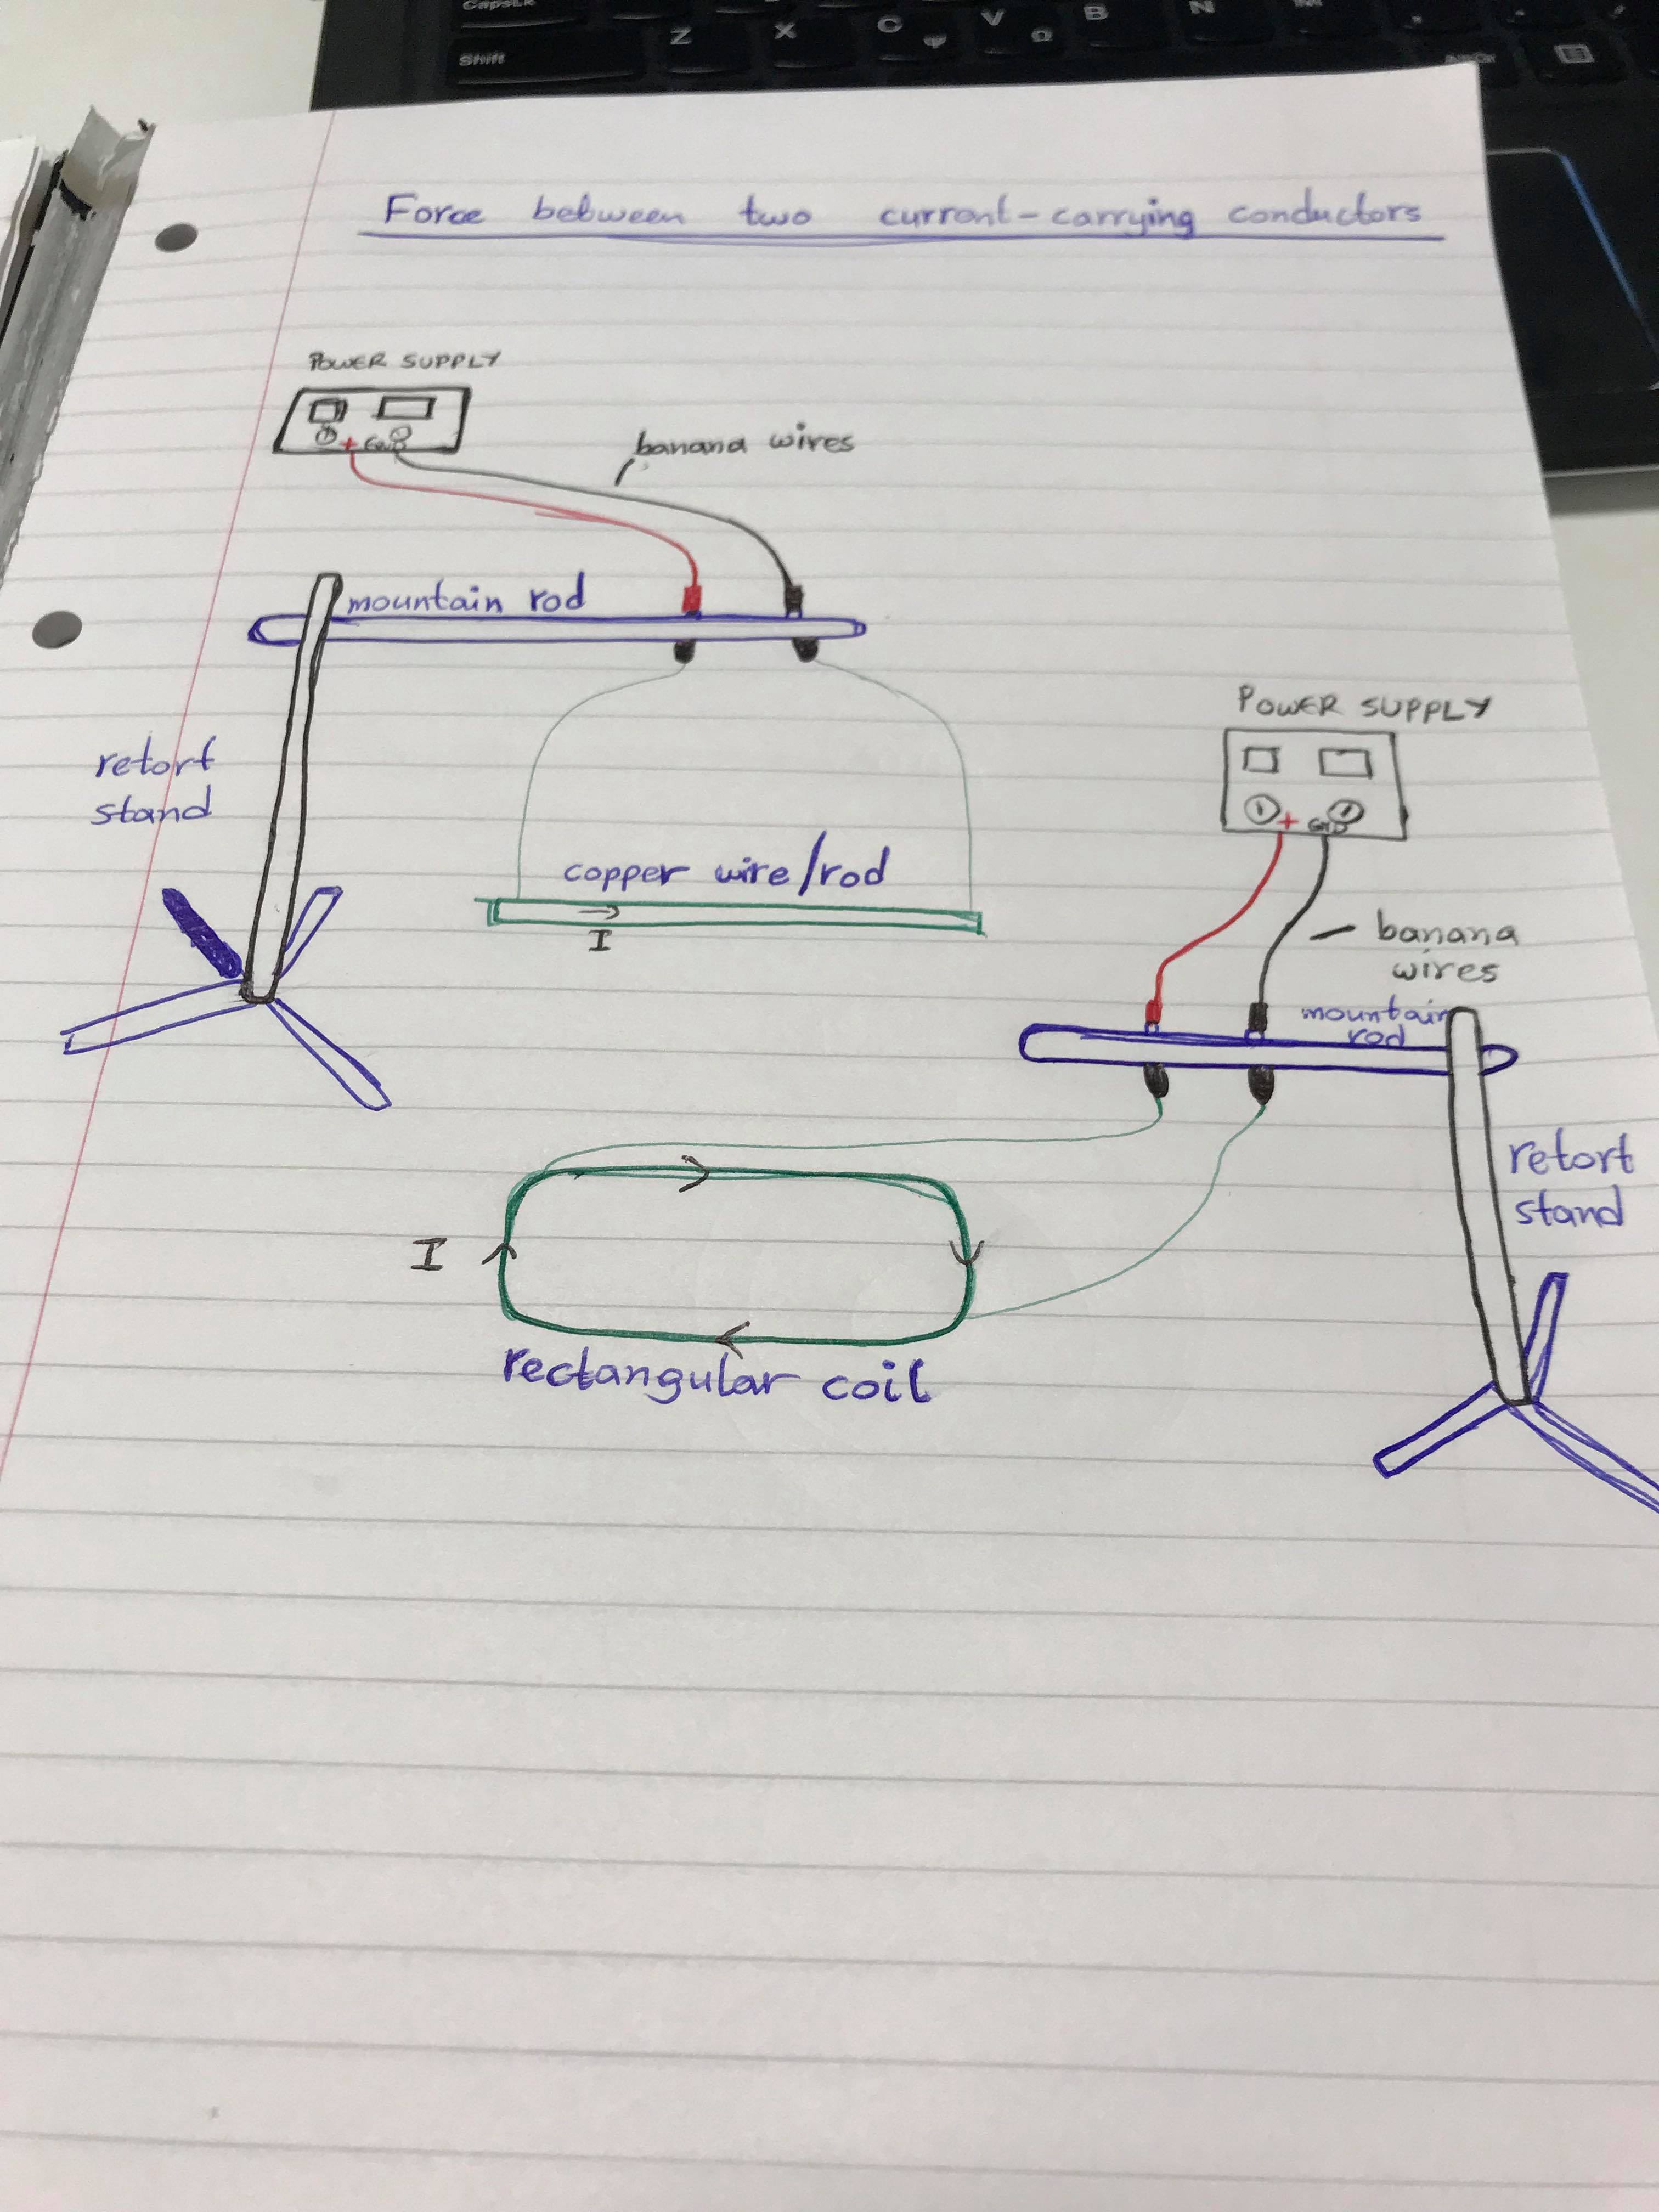 CapsLk
Shift
Z
X
C
V
Ω
B
N
M
Force between two current-carrying conductors
POWER SUPPLY
+ GND
banana wires
mountain rod
retort
stand
copper wire/rod
I
POWER SUPPLY
+ GND
banana
wires
mountain
rod
retort
stand
I
rectangular coil